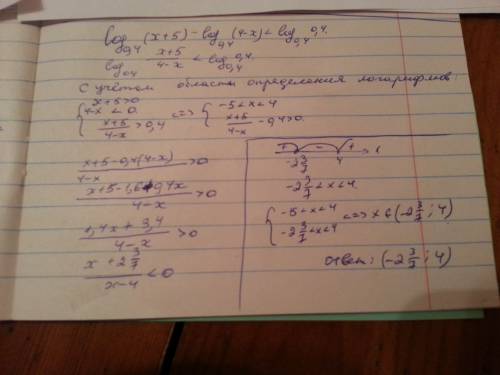 log₀,₄ (x+5) - log₀,₄ (4-x) < log₀,₄ 0,4.
log₀,₄ (x+5)/(4-x) < log₀,₄ 0,4.
с учётом области определения логарифмов:
{ x+5>0
4-x < 0.
(x+5)/(4-x) > 0,4
<=> { -5<x<4
(x+5)/(4-x) - 0,4>0.
(x+5-0,4(4-x))/(4-x) >0
(x+5-1,6+0,4x)/(4-x) >0
(1,4x+3,4)/(4-x) >0
(x+2 3/7)/(x-4) <0
+ - +
-2 3/7 4
-2 3/7 <x<4.
{ -5<x<4
-2 3/7 <x<4
<=> x ∈ (-2 3/7; 4)
ответ: (-2 3/7; 4)